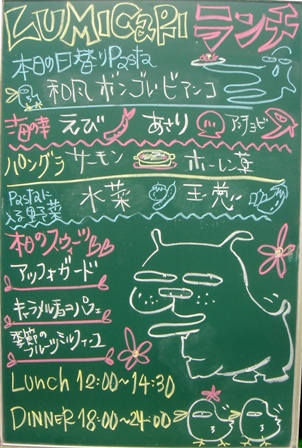 ZUMiCaPi ランチ
本日の日替りPasta
和風ボンゴレ・ビアンコ
海の幸 えび あさり アンチョビ
パングラ サーモン ホーレン草
Pastaに入る野菜 水菜 玉葱
和のスウィーツ
アッフォガード
キャラメルチョコパフェ
季節のフルーツミルフィーユ
Lunch 12:00~14:30
DINNER 18:00~24:00